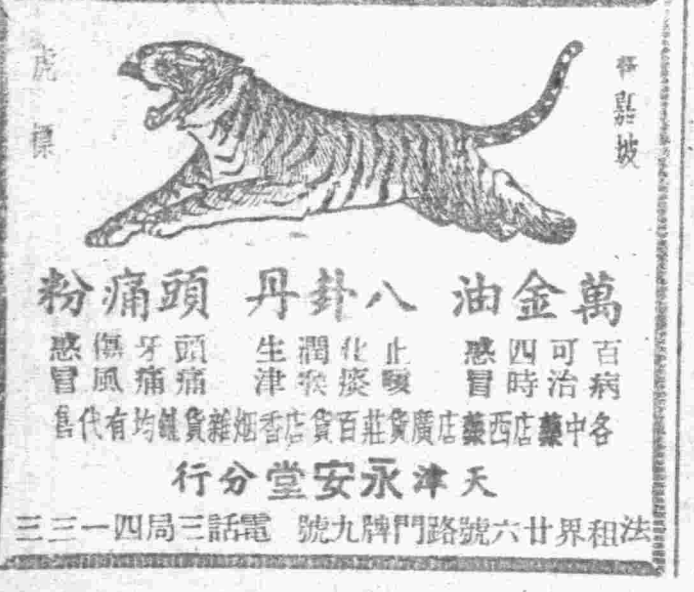 星嘉坡
虎標
萬金油 八卦丹 頭痛粉
百病可治四時感冒
止咳化痰潤喉生津
頭痛牙痛傷風感冒
各中藥店西藥店廣貨莊百貨店香烟雜貨舖均有代售
天津永安堂分行
法租界廿六號路門牌九號 電話三局四一三三